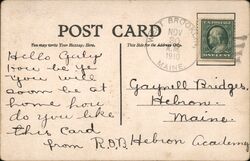 POST CARD
You may Write Your Message Here.
This Side is for the Address.
BROOK
NOV
30
1910
MAINE.
ONE CENT
Hello Guly
how be ye
you will
soon be at
home how
do you like
this Card
from R.D.B. Hebron Academy
Gaynell Bridges.
Hebron.
Maine.